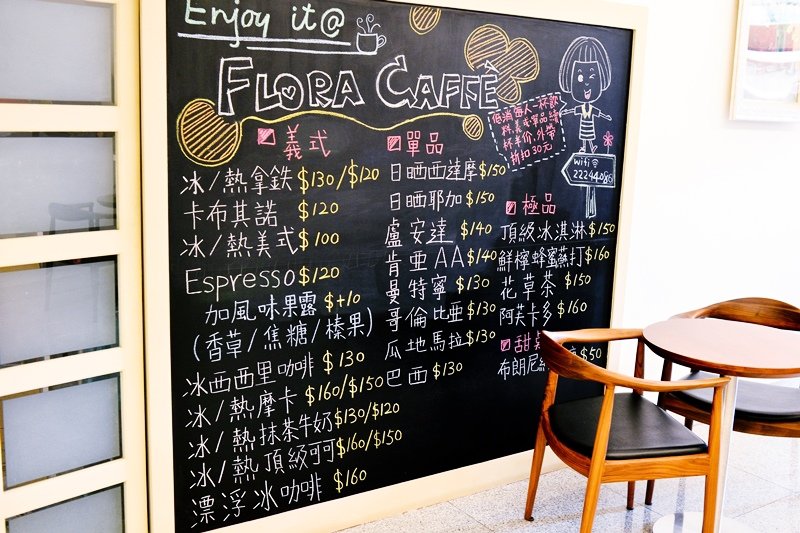 Enjoy it@
FLORA CAFFÈ
義式
冰/熱拿鉄 $130/$120
卡布其諾 $120
冰/熱美式 $100
Espresso $120
加風味果露 $+10
(香草/焦糖/榛果)
冰西西里咖啡 $130
冰/熱摩卡 $160/$150
冰/熱抹茶牛奶 $130/$120
冰/熱頂級可可 $160/$150
漂浮冰咖啡 $160
單品
日晒西達摩 $150
日晒耶加 $150
盧安達 $140
肯亞AA $140
曼特寧 $130
哥倫比亞 $130
瓜地馬拉 $130
巴西 $130
低消每人一杯飲
料,美式.單品續
杯半价,外帶
折扣30元
wifi
22244086
極品
頂級冰淇淋 $150
鮮檸蜂蜜蘇打 $160
花草茶 $150
阿芙卡多 $160
甜
布朗尼 $50